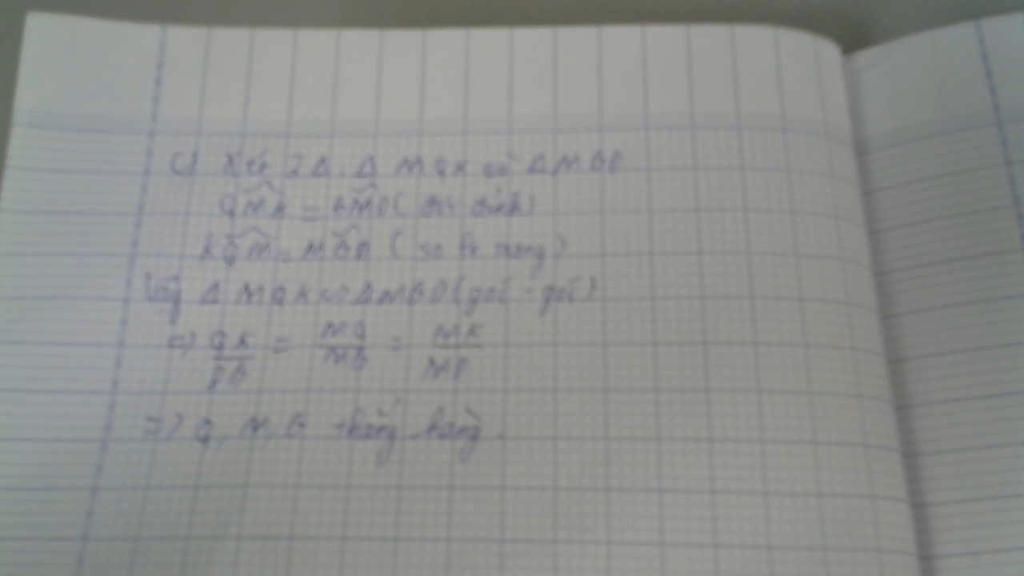 c) Xét 2Δ. Δ MQK và ΔMBD
QMK = BMD (đối đỉnh)
KQM = MBD (so le trong)
Vậy Δ MQK ∽ ΔMBD (góc - góc)
=> QK/DB = MQ/MB = MK/MD
=> Q, M, B thẳng hàng.